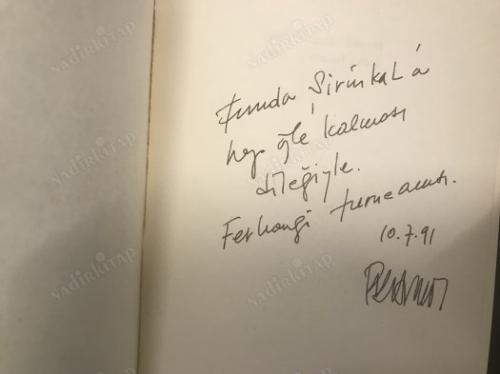 Funda Şirinkal'a
hep öyle kalması
dileğiyle.
Ferhangi turne anısı.
10.7.91
NADİRKİTAP